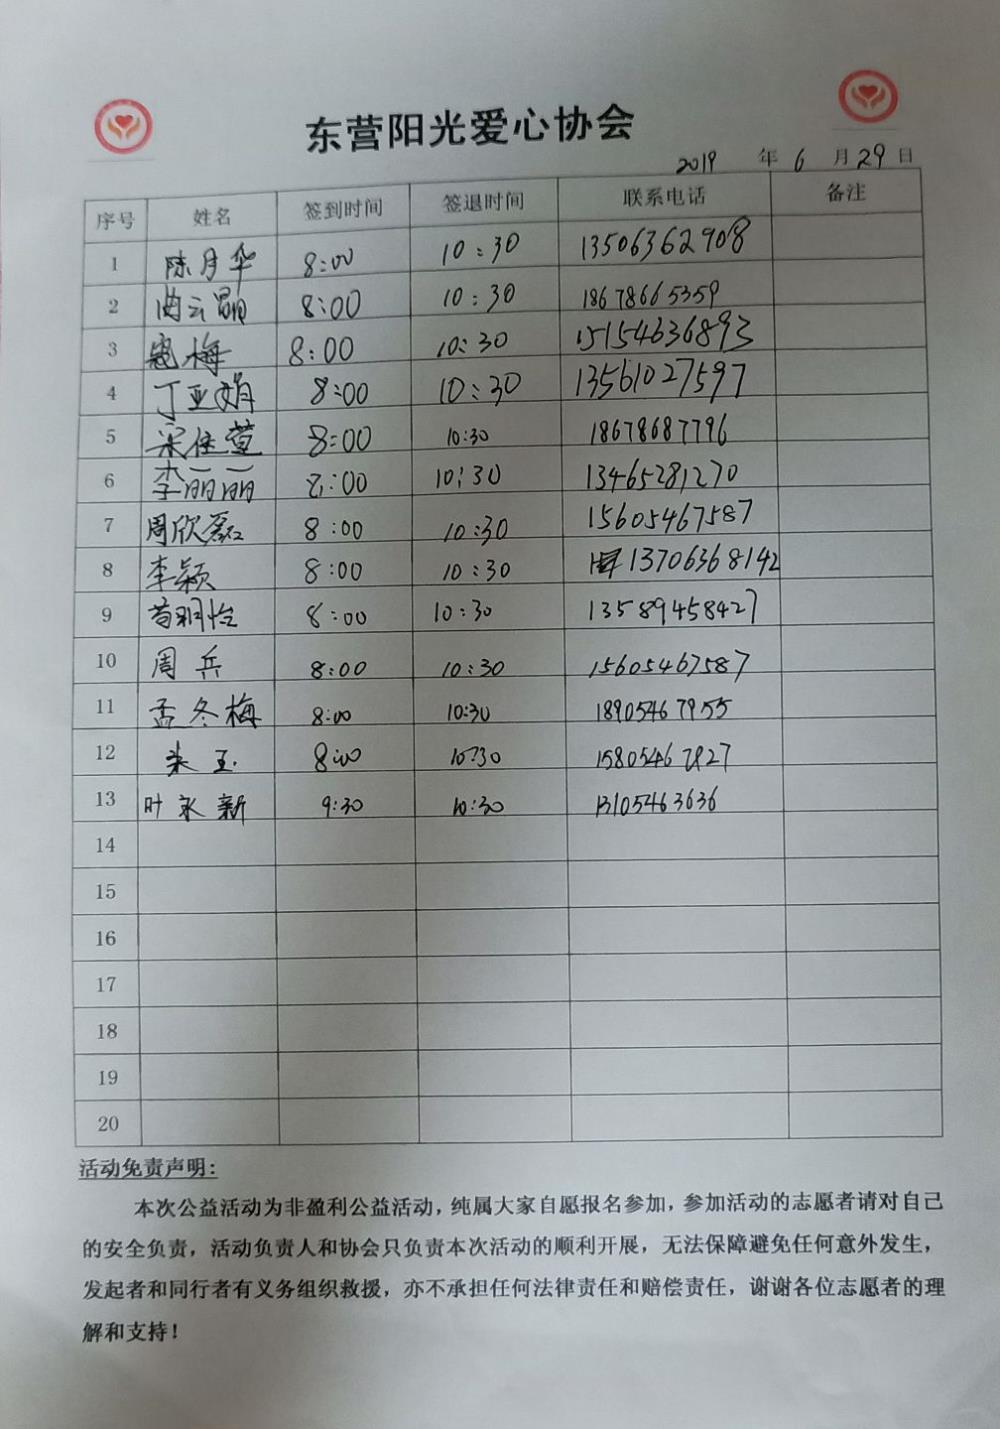 东营阳光爱心协会
2019 年 6 月 29 日
序号 姓名 签到时间 签退时间 联系电话 备注
1 陈月华 8:00 10:30 13506362908
2 曲云娟 8:00 10:30 18678665359
3 寇梅 8:00 10:30 15154636893
4 丁亚娟 8:00 10:30 13561027597
5 梁佳萱 8:00 10:30 18678687796
6 李丽丽 8:00 10:30 13465281270
7 周欣磊 8:00 10:30 15605467587
8 李颖 8:00 10:30 13706368142
9 苟明怡 8:00 10:30 13589458427
10 周兵 8:00 10:30 15605467587
11 孟冬梅 8:00 10:30 18905467955
12 朱玉 8:00 10:30 15805467827
13 叶永新 9:30 10:30 13105463636
14
15
16
17
18
19
20
活动免责声明:
本次公益活动为非盈利公益活动，纯属大家自愿报名参加，参加活动的志愿者请对自己
的安全负责，活动负责人和协会只负责本次活动的顺利开展，无法保障避免任何意外发生，
发起者和同行者有义务组织救援，亦不承担任何法律责任和赔偿责任，谢谢各位志愿者的理
解和支持！